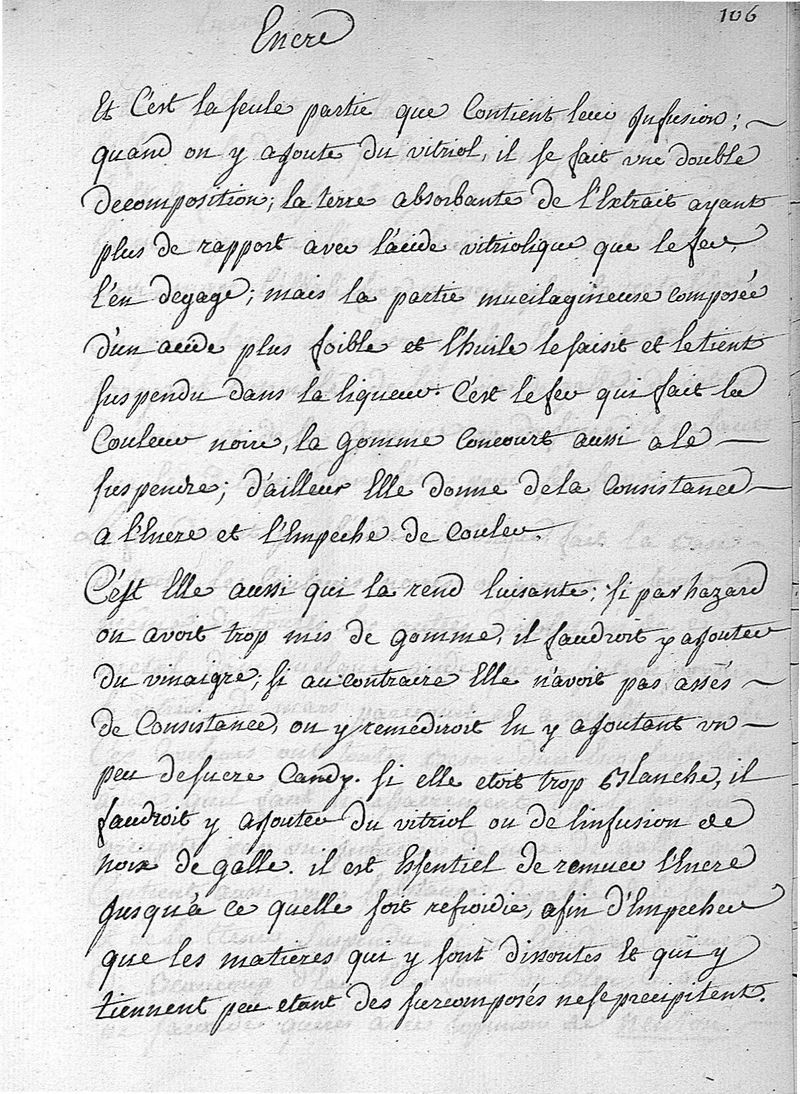 106
Encre
Et C'est la seule partie que Contient leur Jnfusion;
quand on y ajoute du vitriol, il se fait vne double
decomposition; la terre absorbante de l'Extrait ayant
plus de rapport avec l'acide vitriolique que le fer,
l'en degage; mais la partie mucilagineuse composée
d'un acide plus foible et l'huile le saisit et le tient
suspendu dans la liqueur. C'est le fer qui fait la
Couleur noire, la gomme Concourt aussi a le
suspendre; d'ailleur Elle donne de la Consistance
a l'Encre et l'Empeche de Couler.
C'est Elle aussi qui la rend luisante; si par hazard
on avoit trop mis de gomme, il faudroit y ajouter
du vinaigre; si au contraire Elle n'avoit pas assés
de Consistance, on y remediroit En y ajoutant vn
peu de sucre Candy. si elle etoit trop Blanche, il
faudroit y ajouter du vitriol ou de linfusion de
noix de galle. il est Essentiel de remuer l'Encre
Jusqu'a ce quelle soit refroidie, afin d'Empecher
que les matieres qui y sont dissoutes Et qui y
tiennent peu etant des surcomposés ne se precipitent.